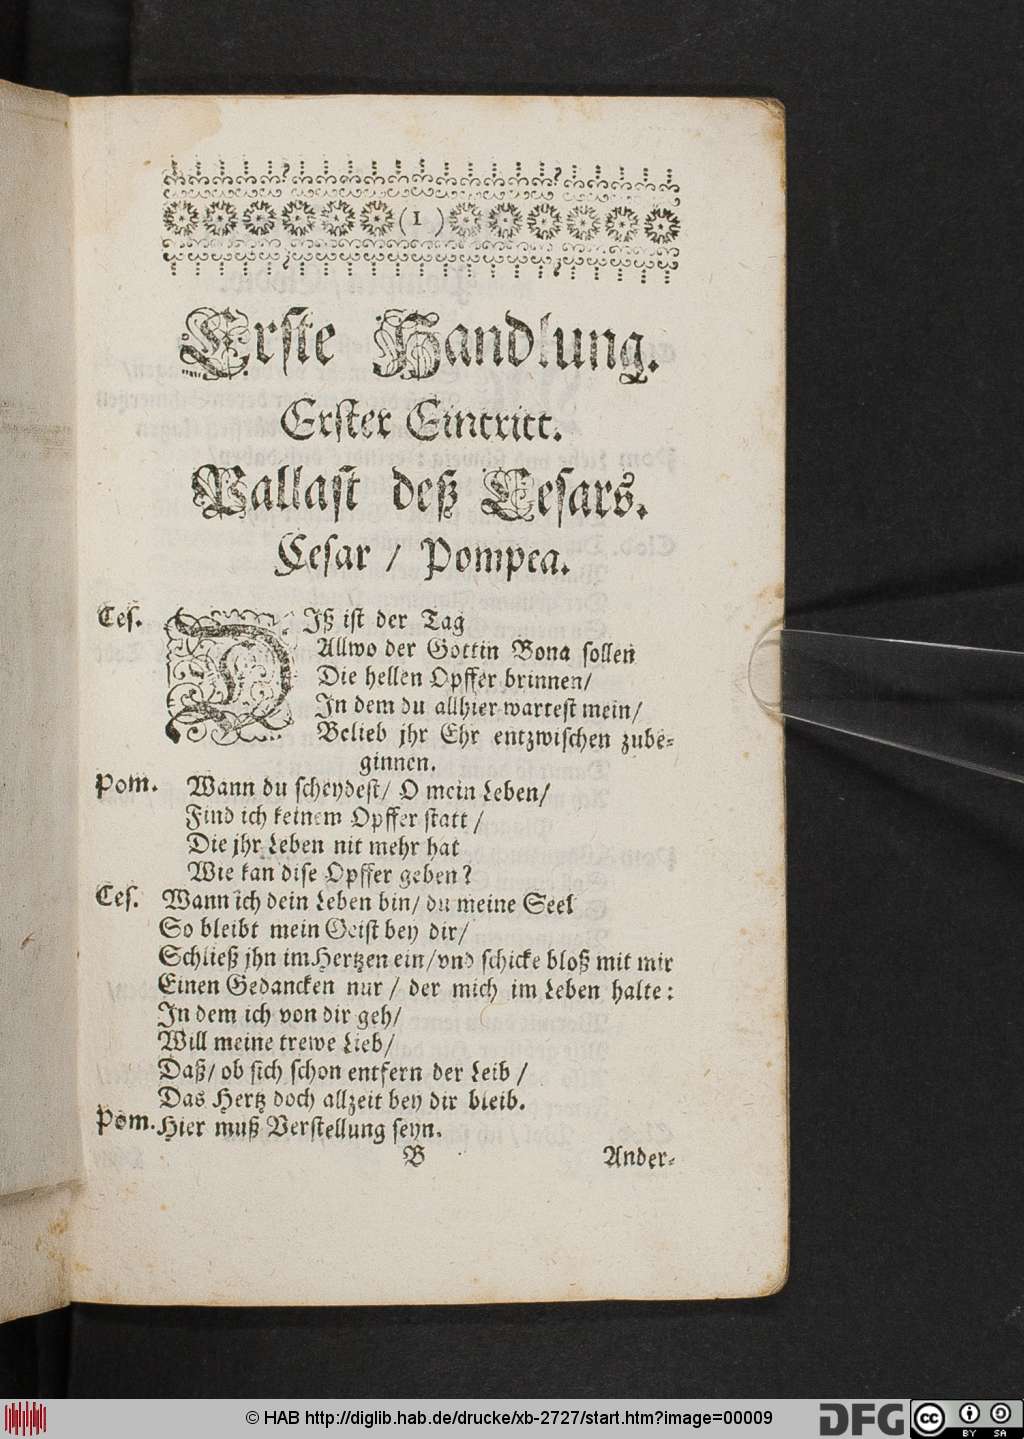 ( 1 )
Erſte Handlung.
Erſter Eintritt.
Pallaſt deß Ceſars.
Ceſar / Pompea.
Ceſ. DIß iſt der Tag
Allwo der Gottin Bona ſollen
Die hellen Opffer brinnen/
In dem du allhier warteſt mein/
Belieb jhr Ehr entzwiſchen zube⸗
ginnen.
Pom. Wann du ſcheydeſt/ O mein Leben/
Find ich keinem Opffer ſtatt /
Die jhr Leben nit mehr hat
Wie kan diſe Opffer geben?
Ceſ. Wann ich dein Leben bin/ du meine Seel
So bleibt mein Geiſt bey dir/
Schließ jhn im Hertzen ein/vnd ſchicke bloß mit mir
Einen Gedancken nur / der mich im Leben halte:
In dem ich von dir geh/
Will meine trewe Lieb/
Daß/ ob ſich ſchon entfern der Leib /
Das Hertz doch allzeit bey dir bleib.
Pom. Hier muß Verſtellung ſeyn.
B Ander⸗
© HAB http://diglib.hab.de/drucke/xb-2727/start.htm?image=00009
DFG
cc BY SA